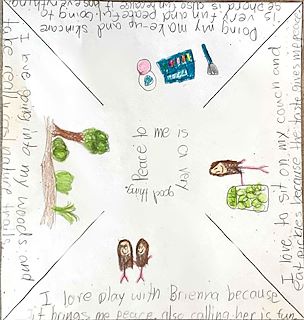 Peace to me is a very
good thing.
Doing my make-up and skincare
is very fun and peaceful. Going to
is also fun because it
I love to sit on my couch and
eat
I love play with Brienna because
it brings me peace, also calling her is fun
I love going into my woods and
take really cool